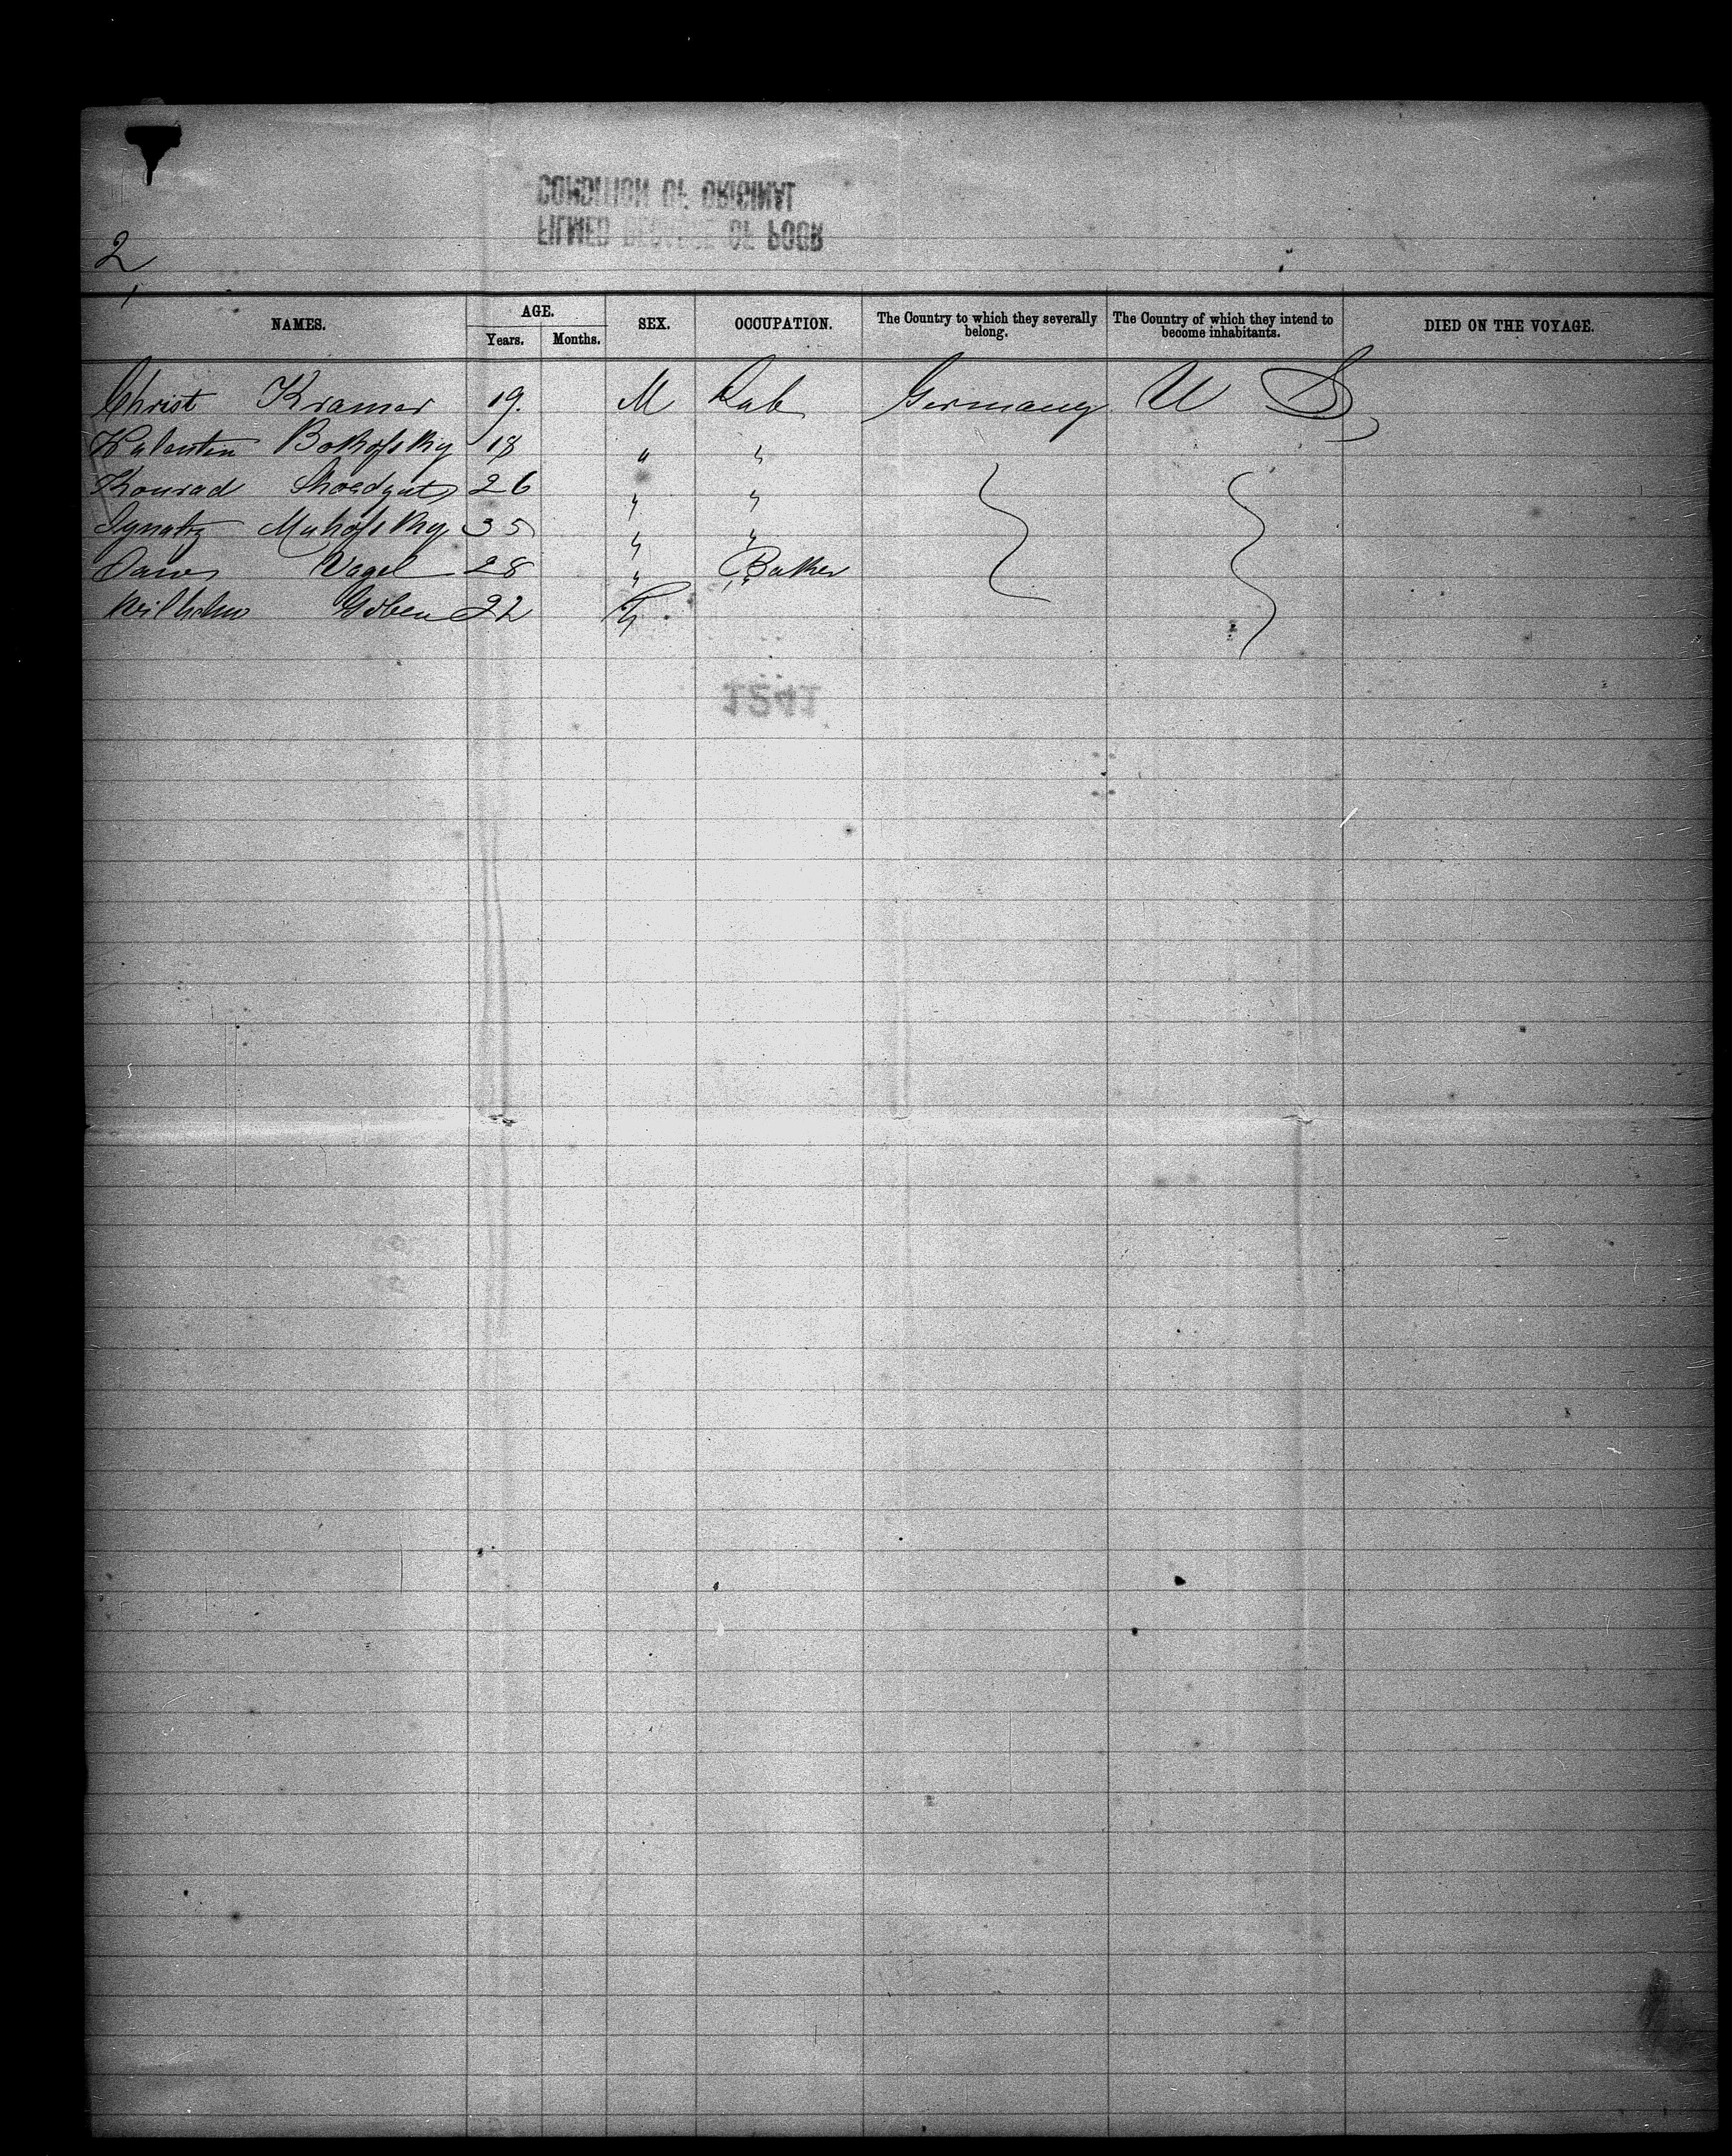 CONDITION OF ORIGINAL
FILMED BECAUSE OF POOR
2
NAMES. AGE. SEX. OCCUPATION. The Country to which they severally belong. The Country of which they intend to become inhabitants. DIED ON THE VOYAGE.
Years. Months.
Christ Kramer 19. M Lab Germany U S
Valentin 18 " "
Konrad 26 " "
Ignatz 35 " "
Vagel 28 " Baker
Wilhelm 22 " "
1241